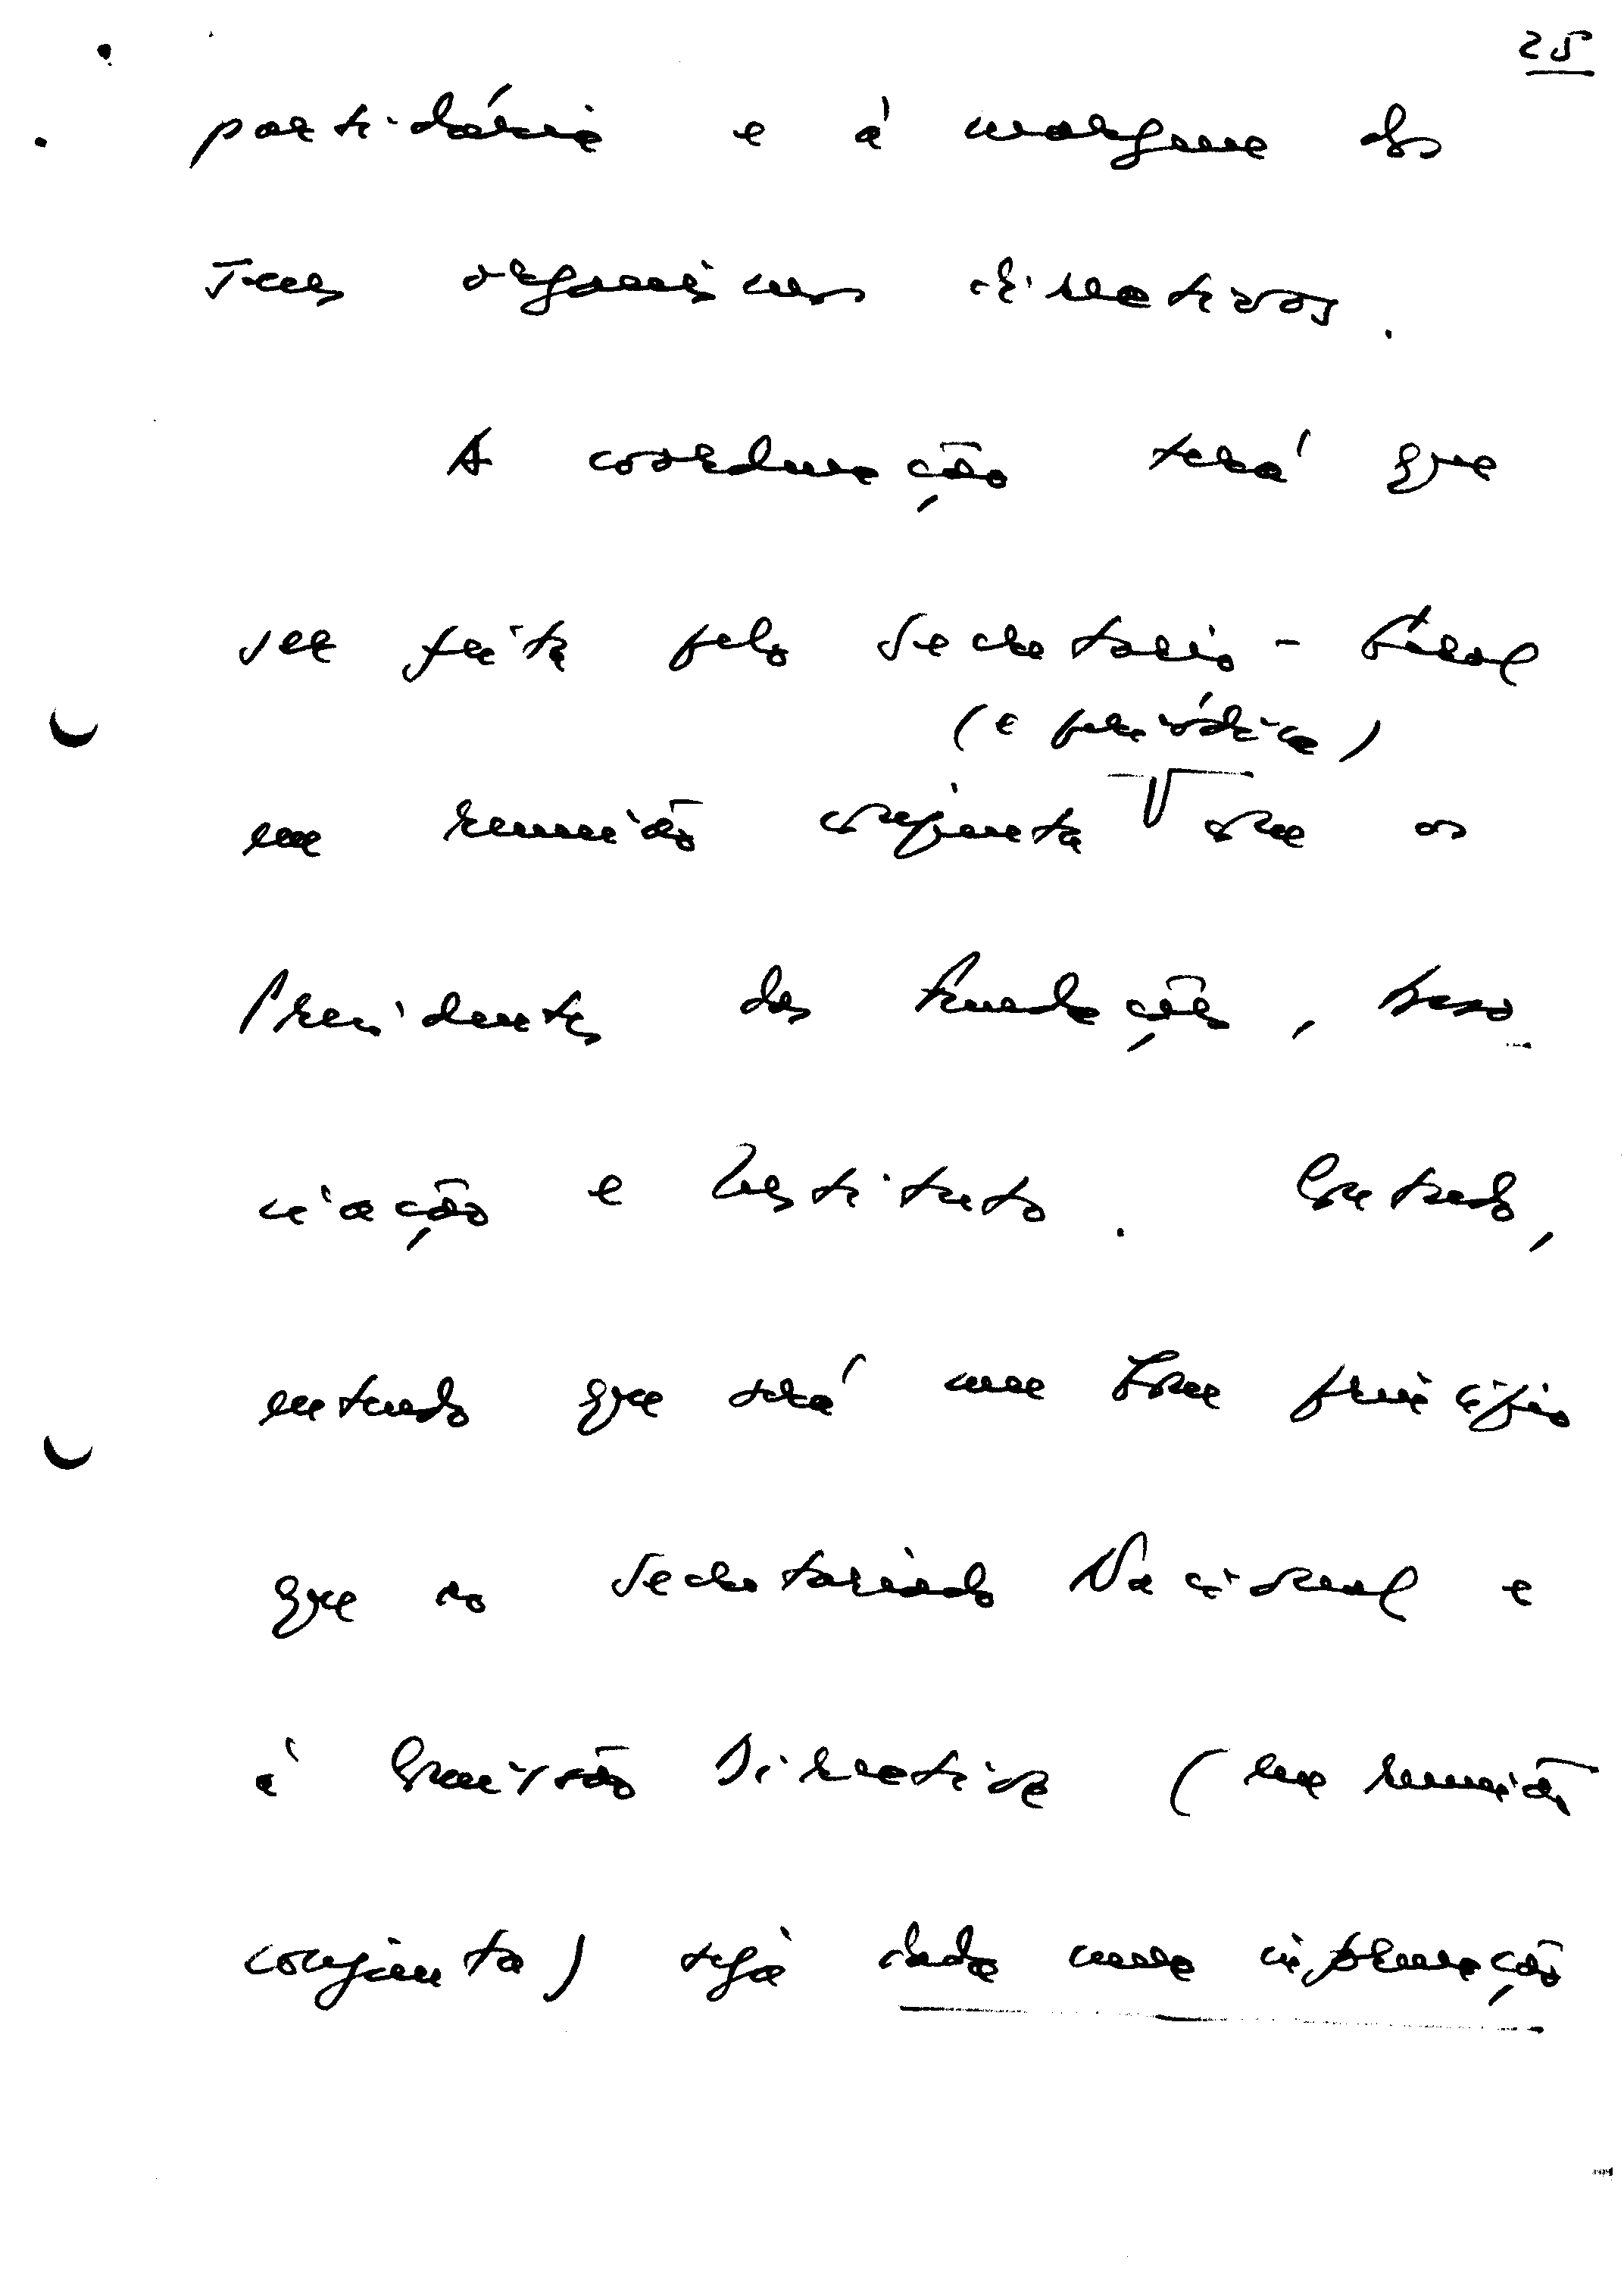 25
partidária e à margem dos
seus organismos directivos.
A coordenação terá que
ser feita pelo Secretário-Geral
(e periódica)
em reunião conjunta com os
Presidentes das Fundações, Asso
ciação e Instituto. Contudo,
entendo que será um bom princípio
que ao Secretariado Nacional e
à Comissão Directiva (em reunião
conjunta) seja dada uma informação